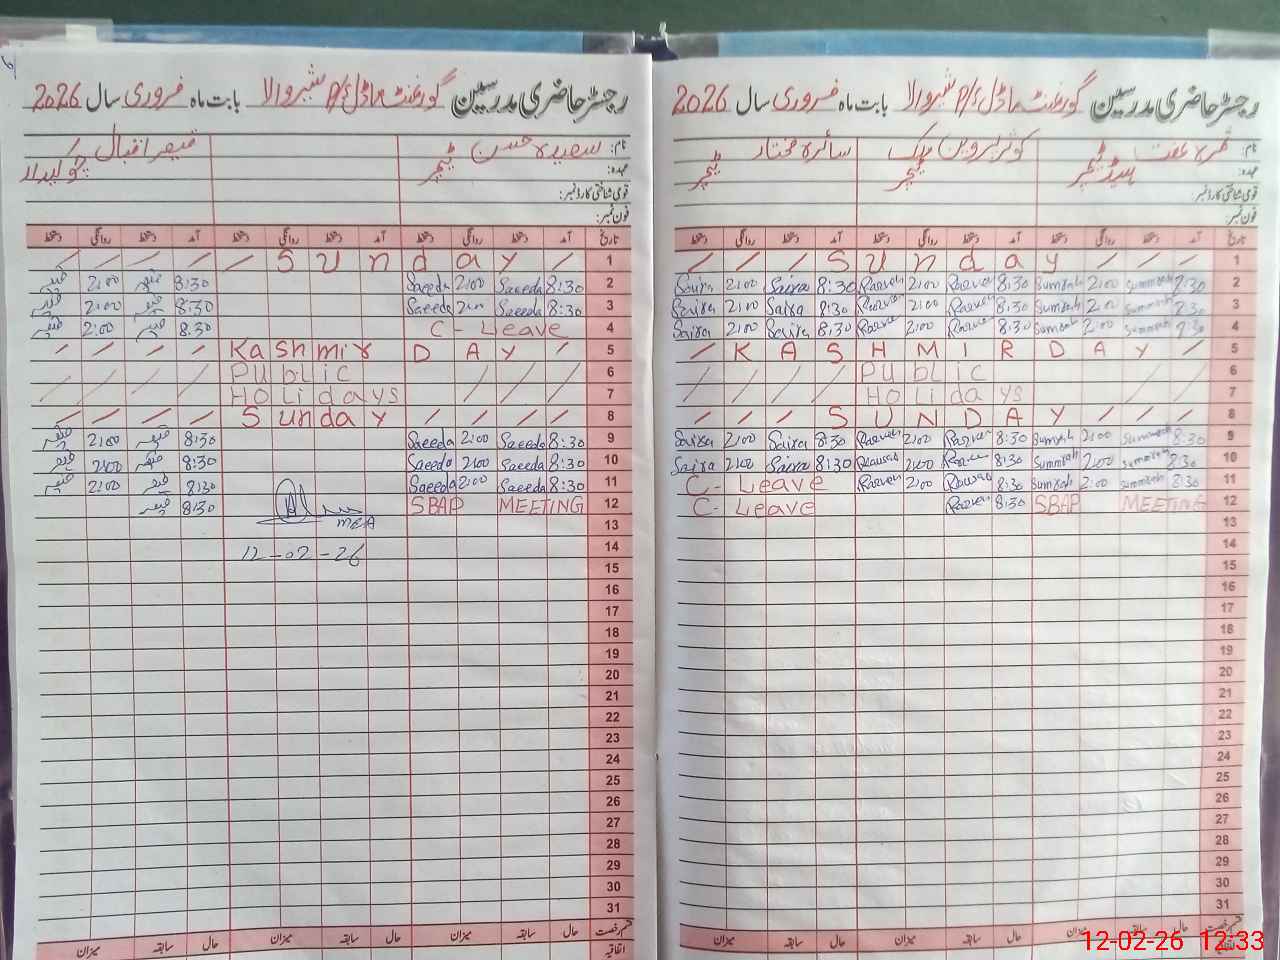 رجسٹر حاضری مدرسین گورنمنٹ ماڈل P/S شیر والا بابت ماہ فروری سال 2026
نام: ثمرہ عفت کوثر پروین ملک سائرہ مختار
عہدہ: ہیڈ ٹیچر ٹیچر ٹیچر
قومی شناختی کارڈ نمبر:
فون نمبر:
تاریخ آمد دستخط روانگی دستخط آمد دستخط روانگی دستخط آمد دستخط روانگی دستخط
/ / / S u n d a y / / / 1
Saira 2:00 Saira 8:30 Parveen 2:00 Parveen 8:30 Sumrah 2:00 Summrah 8:30 2
Saira 2:00 Saira 8:30 Parveen 2:00 Parveen 8:30 Sumrah 2:00 Summrah 8:30 3
Saira 2:00 Saira 8:30 Parveen 2:00 Parveen 8:30 Sumrah 2:00 Summrah 8:30 4
/ K A S H M I R D A Y / 5
/ / / / PUbLIC / / / 6
/ / / / HOLidays / / / 7
/ / / S U N D A Y / / / 8
Saira 2:00 Saira 8:30 Parveen 2:00 Parveen 8:30 Sumrah 2:00 Summrah 8:30 9
Saira 2:00 Saira 8:30 Parveen 2:00 Parveen 8:30 Summrah 2:00 summrah 8:30 10
C- Leave Parveen 2:00 Parveen 8:30 Sumrah 2:00 summrah 8:30 11
C- Leave Parveen 8:30 SBAP MEETING 12
13
14
15
16
17
18
19
20
21
22
23
24
25
26
27
28
29
30
31
قسم رخصت حال سابقہ میزان حال سابقہ میزان حال سابقہ میزان
اتفاقیہ
رجسٹر حاضری مدرسین گورنمنٹ ماڈل P/S شیر والا بابت ماہ فروری سال 2026
نام: سعیدہ حسن قیصر اقبال
عہدہ: ٹیچر چوکیدار
قومی شناختی کارڈ نمبر:
فون نمبر:
تاریخ آمد دستخط روانگی دستخط آمد دستخط روانگی دستخط آمد دستخط روانگی دستخط
/ / / / / S u n d a y / 1
قیصر 2:00 قیصر 8:30 Saeeda 2:00 Saeeda 8:30 2
قیصر 2:00 قیصر 8:30 Saeeda 2:00 Saeeda 8:30 3
قیصر 2:00 قیصر 8:30 C - Leave 4
/ / / / Kashmir D A Y / 5
/ / / / PUbLIC / / / 6
/ / / / HOLidays / / / 7
/ / / / Sunday / / / / 8
قیصر 2:00 قیصر 8:30 Saeeda 2:00 Saeeda 8:30 9
قیصر 2:00 قیصر 8:30 Saeeda 2:00 Saeeda 8:30 10
قیصر 2:00 قیصر 8:30 Saeeda 2:00 Saeeda 8:30 11
قیصر 8:30 SBAP MEETING 12
MEA
13
12-02-26 14
15
16
17
18
19
20
21
22
23
24
25
26
27
28
29
30
31
قسم رخصت حال سابقہ میزان حال سابقہ میزان حال سابقہ میزان
اتفاقیہ
12-02-26 12:33